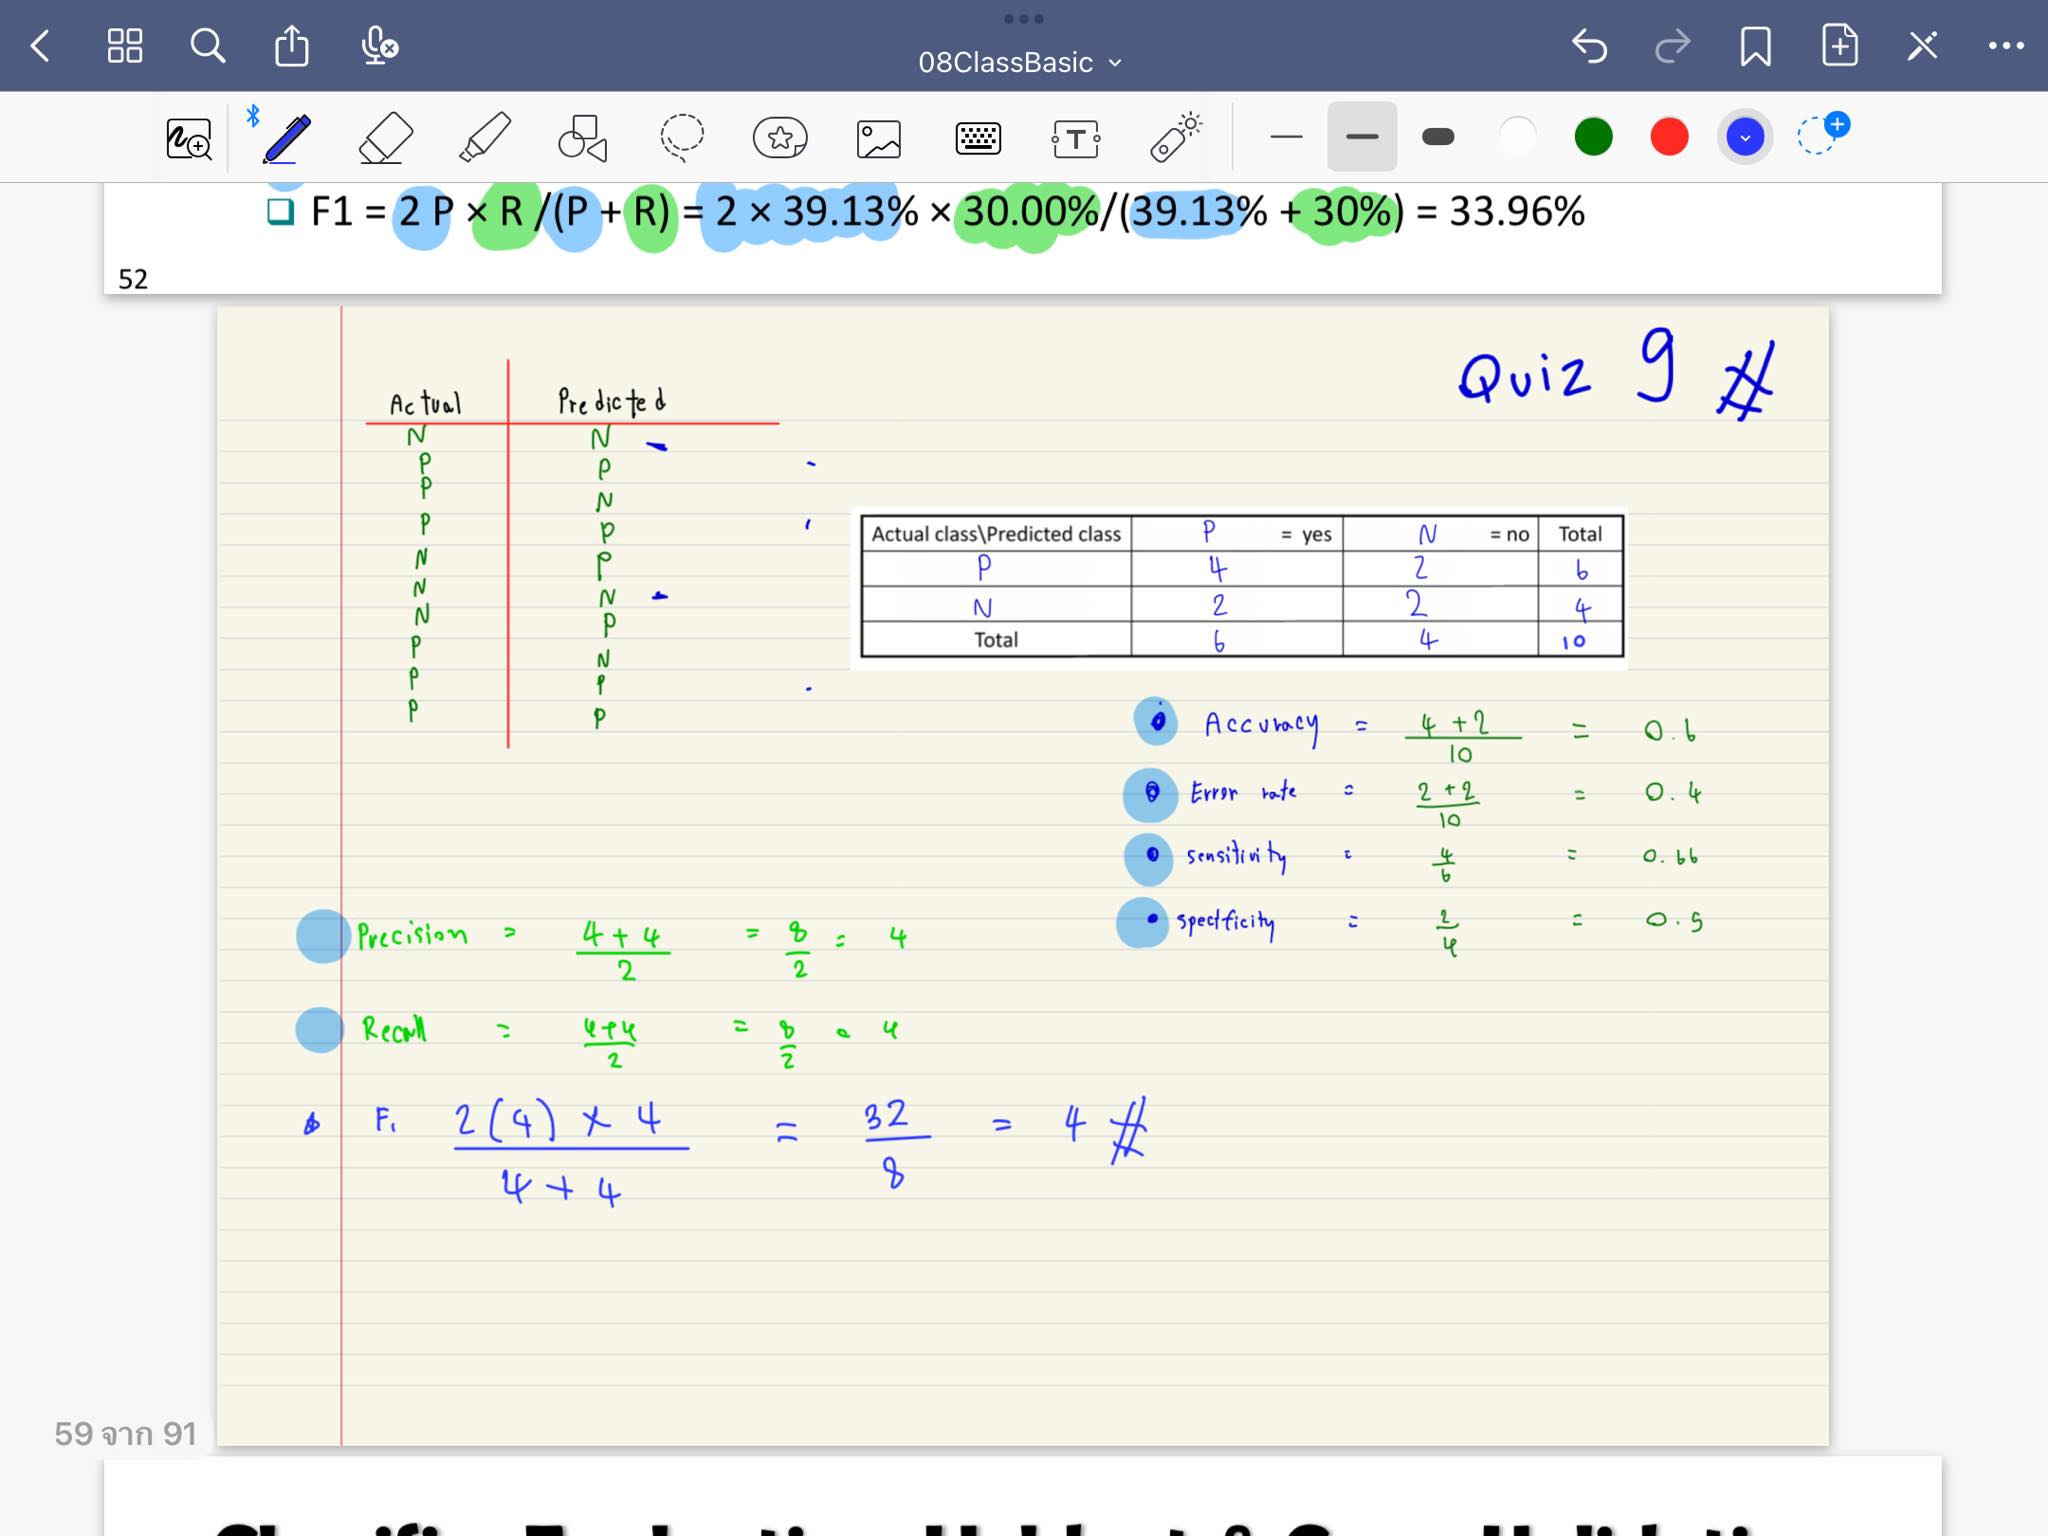 08ClassBasic
F1 = 2 P × R /(P + R) = 2 × 39.13% × 30.00%/(39.13% + 30%) = 33.96%
52
Quiz 9 #
Actual Predicted
N N
P P
P N
P P
N P
N N
N P
P N
P P
P P
Actual class\Predicted class P = yes N = no Total
P 4 2 6
N 2 2 4
Total 6 4 10
Accuracy = 4 + 2 / 10 = 0.6
Error rate = 2 + 2 / 10 = 0.4
sensitivity = 4 / 6 = 0.66
specificity = 2 / 4 = 0.5
Precision = 4 + 4 / 2 = 8 / 2 = 4
Recall = 4+4 / 2 = 8 / 2 = 4
F1 2(4) × 4 / 4 + 4 = 32 / 8 = 4 #
59 จาก 91